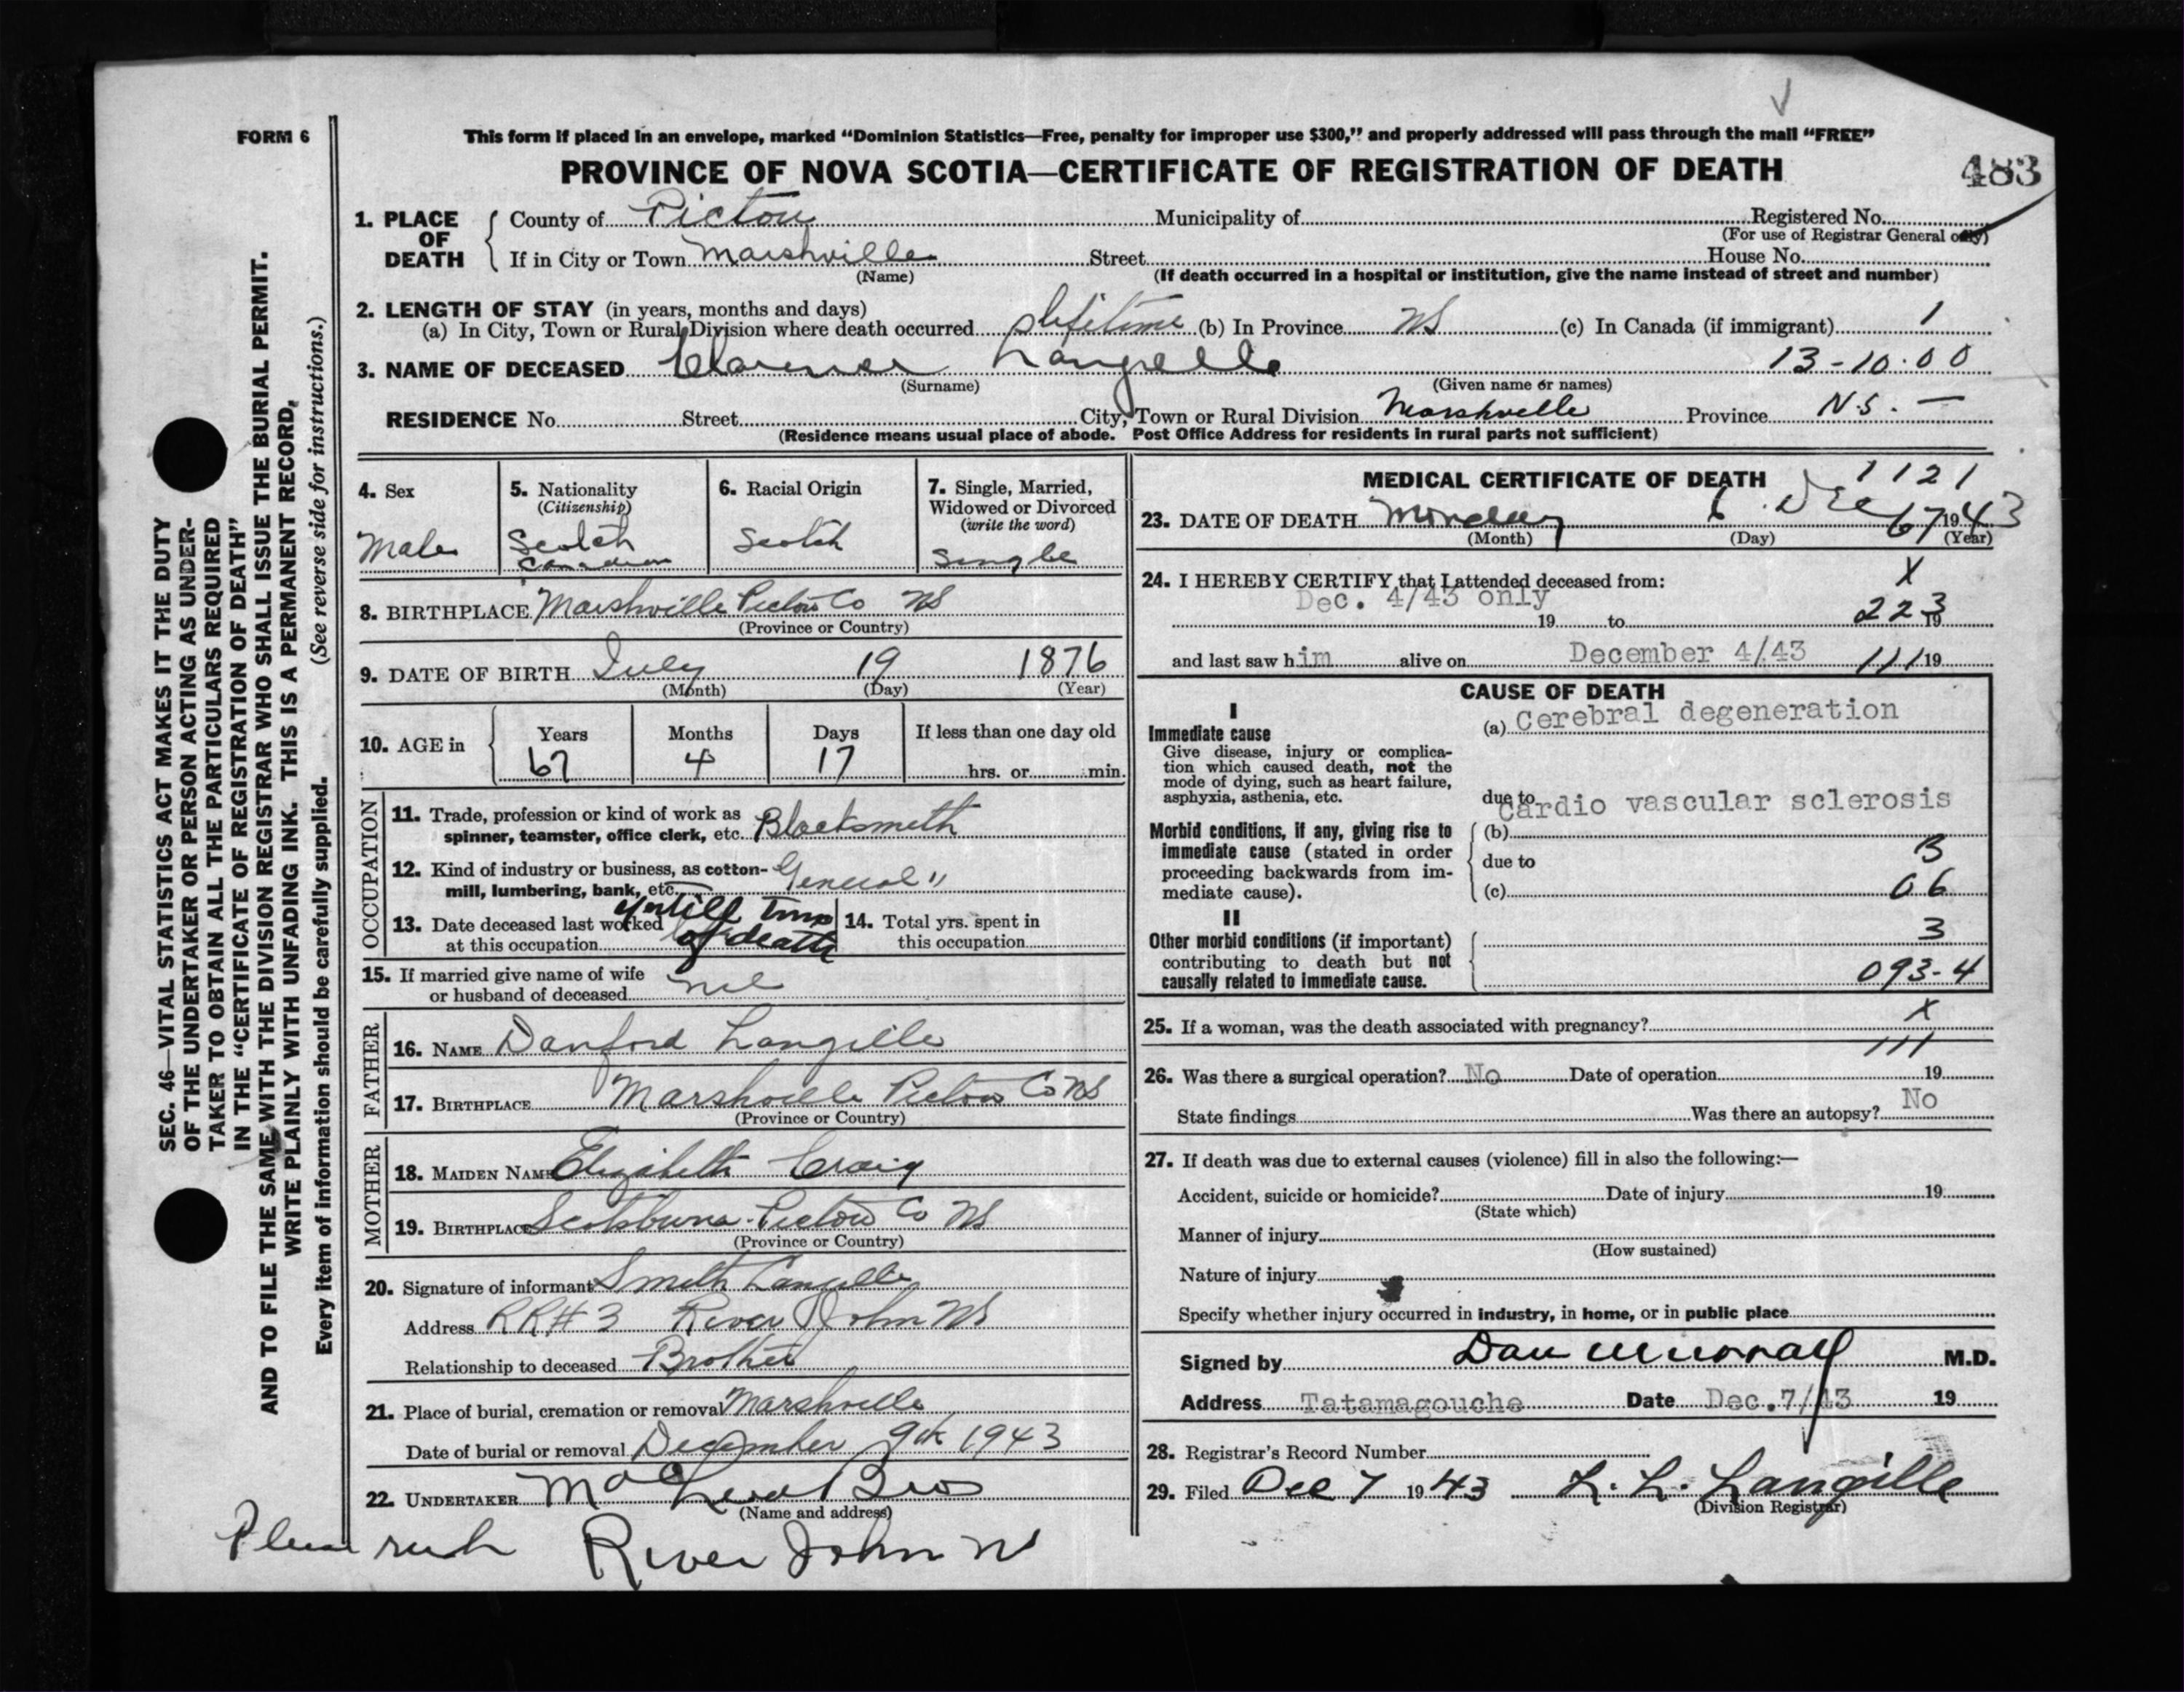 FORM 6
This form if placed in an envelope, marked “Dominion Statistics—Free, penalty for improper use $300,” and properly addressed will pass through the mail “FREE”
PROVINCE OF NOVA SCOTIA—CERTIFICATE OF REGISTRATION OF DEATH
483
1. PLACE OF DEATH
County of Pictou Municipality of Registered No.
(For use of Registrar General only)
If in City or Town Marshville Street House No.
(Name) (If death occurred in a hospital or institution, give the name instead of street and number)
2. LENGTH OF STAY (in years, months and days)
(a) In City, Town or Rural Division where death occurred lifetime (b) In Province NS (c) In Canada (if immigrant) 1
3. NAME OF DECEASED Clarence Langille 13-10.00
(Surname) (Given name or names)
RESIDENCE No. Street City, Town or Rural Division Marshville Province N.S. —
(Residence means usual place of abode. Post Office Address for residents in rural parts not sufficient)
4. Sex
Male
5. Nationality
(Citizenship)
Scotch
Canadian
6. Racial Origin
Scotch
7. Single, Married,
Widowed or Divorced
(write the word)
Single
8. BIRTHPLACE Marshville Pictou Co NS
(Province or Country)
9. DATE OF BIRTH July 19 1876
(Month) (Day) (Year)
10. AGE in
Years Months Days If less than one day old
67 4 17 hrs. or min.
OCCUPATION
11. Trade, profession or kind of work as
spinner, teamster, office clerk, etc. Blacksmith
12. Kind of industry or business, as cotton-
mill, lumbering, bank, etc. General "
13. Date deceased last worked
at this occupation
untill time
of death
14. Total yrs. spent in
this occupation
15. If married give name of wife
or husband of deceased nil
FATHER
16. NAME Danford Langille
17. BIRTHPLACE Marshville Pictou Co NS
(Province or Country)
MOTHER
18. MAIDEN NAME Elizabeth Craig
19. BIRTHPLACE Scotsburn Pictou Co NS
(Province or Country)
20. Signature of informant Smith Langille
Address RR# 3 River John NS
Relationship to deceased Brother
21. Place of burial, cremation or removal Marshville
Date of burial or removal December 9th 1943
22. UNDERTAKER Bros
(Name and address)
Please rush River John
MEDICAL CERTIFICATE OF DEATH
1 1 2 1
23. DATE OF DEATH Monday 6 Dec 67 1943
(Month) (Day) (Year)
24. I HEREBY CERTIFY that I attended deceased from: X
Dec. 4/43 only
19 to 19 223
and last saw him alive on December 4/43 111 19
CAUSE OF DEATH
I
Immediate cause
Give disease, injury or complica-
tion which caused death, not the
mode of dying, such as heart failure,
asphyxia, asthenia, etc.
(a) Cerebral degeneration
due to
Cardio vascular sclerosis
Morbid conditions, if any, giving rise to
immediate cause (stated in order
proceeding backwards from im-
mediate cause).
(b)
due to B
(c) 06
II
Other morbid conditions (if important)
contributing to death but not
causally related to immediate cause.
3
093-4
25. If a woman, was the death associated with pregnancy? X
111
26. Was there a surgical operation? No Date of operation 19
State findings Was there an autopsy? No
27. If death was due to external causes (violence) fill in also the following:—
Accident, suicide or homicide? Date of injury 19
(State which)
Manner of injury
(How sustained)
Nature of injury
Specify whether injury occurred in industry, in home, or in public place
Signed by Dan Murray M.D.
Address Tatamagouche Date Dec. 7/43 19
28. Registrar's Record Number
29. Filed Dec 7 1943 L. L. Langille
(Division Registrar)
SEC. 46—VITAL STATISTICS ACT MAKES IT THE DUTY
OF THE UNDERTAKER OR PERSON ACTING AS UNDER-
TAKER TO OBTAIN ALL THE PARTICULARS REQUIRED
IN THE “CERTIFICATE OF REGISTRATION OF DEATH”
AND TO FILE THE SAME WITH THE DIVISION REGISTRAR WHO SHALL ISSUE THE BURIAL PERMIT.
WRITE PLAINLY WITH UNFADING INK. THIS IS A PERMANENT RECORD.
Every item of information should be carefully supplied. (See reverse side for instructions.)